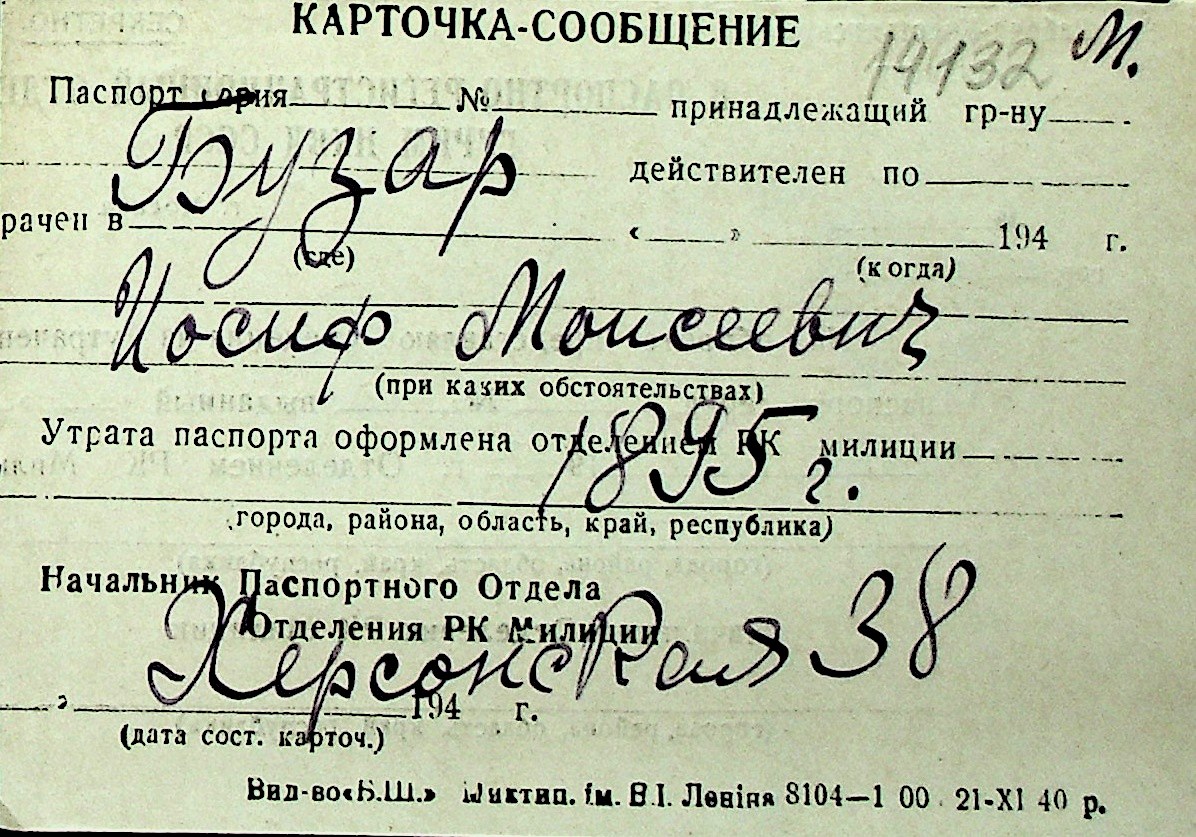 КАРТОЧКА-СООБЩЕНИЕ
14132 М.
Паспорт серия № принадлежащий гр-ну
Бузар
действителен по
рачен в « » 194 г.
(где) (когда)
Иосиф Моисеевич
(при каких обстоятельствах)
Утрата паспорта оформлена отделением РК милиции
1895 г.
(города, района, область, край, республика)
Начальник Паспортного Отдела
Отделения РК Милиции
Херсонская 38
» 194 г.
(дата сост. карточ.)
Вид-во «Б.Ш.» ім. В.І. Леніна 8104—1 00 21-XI 40 р.